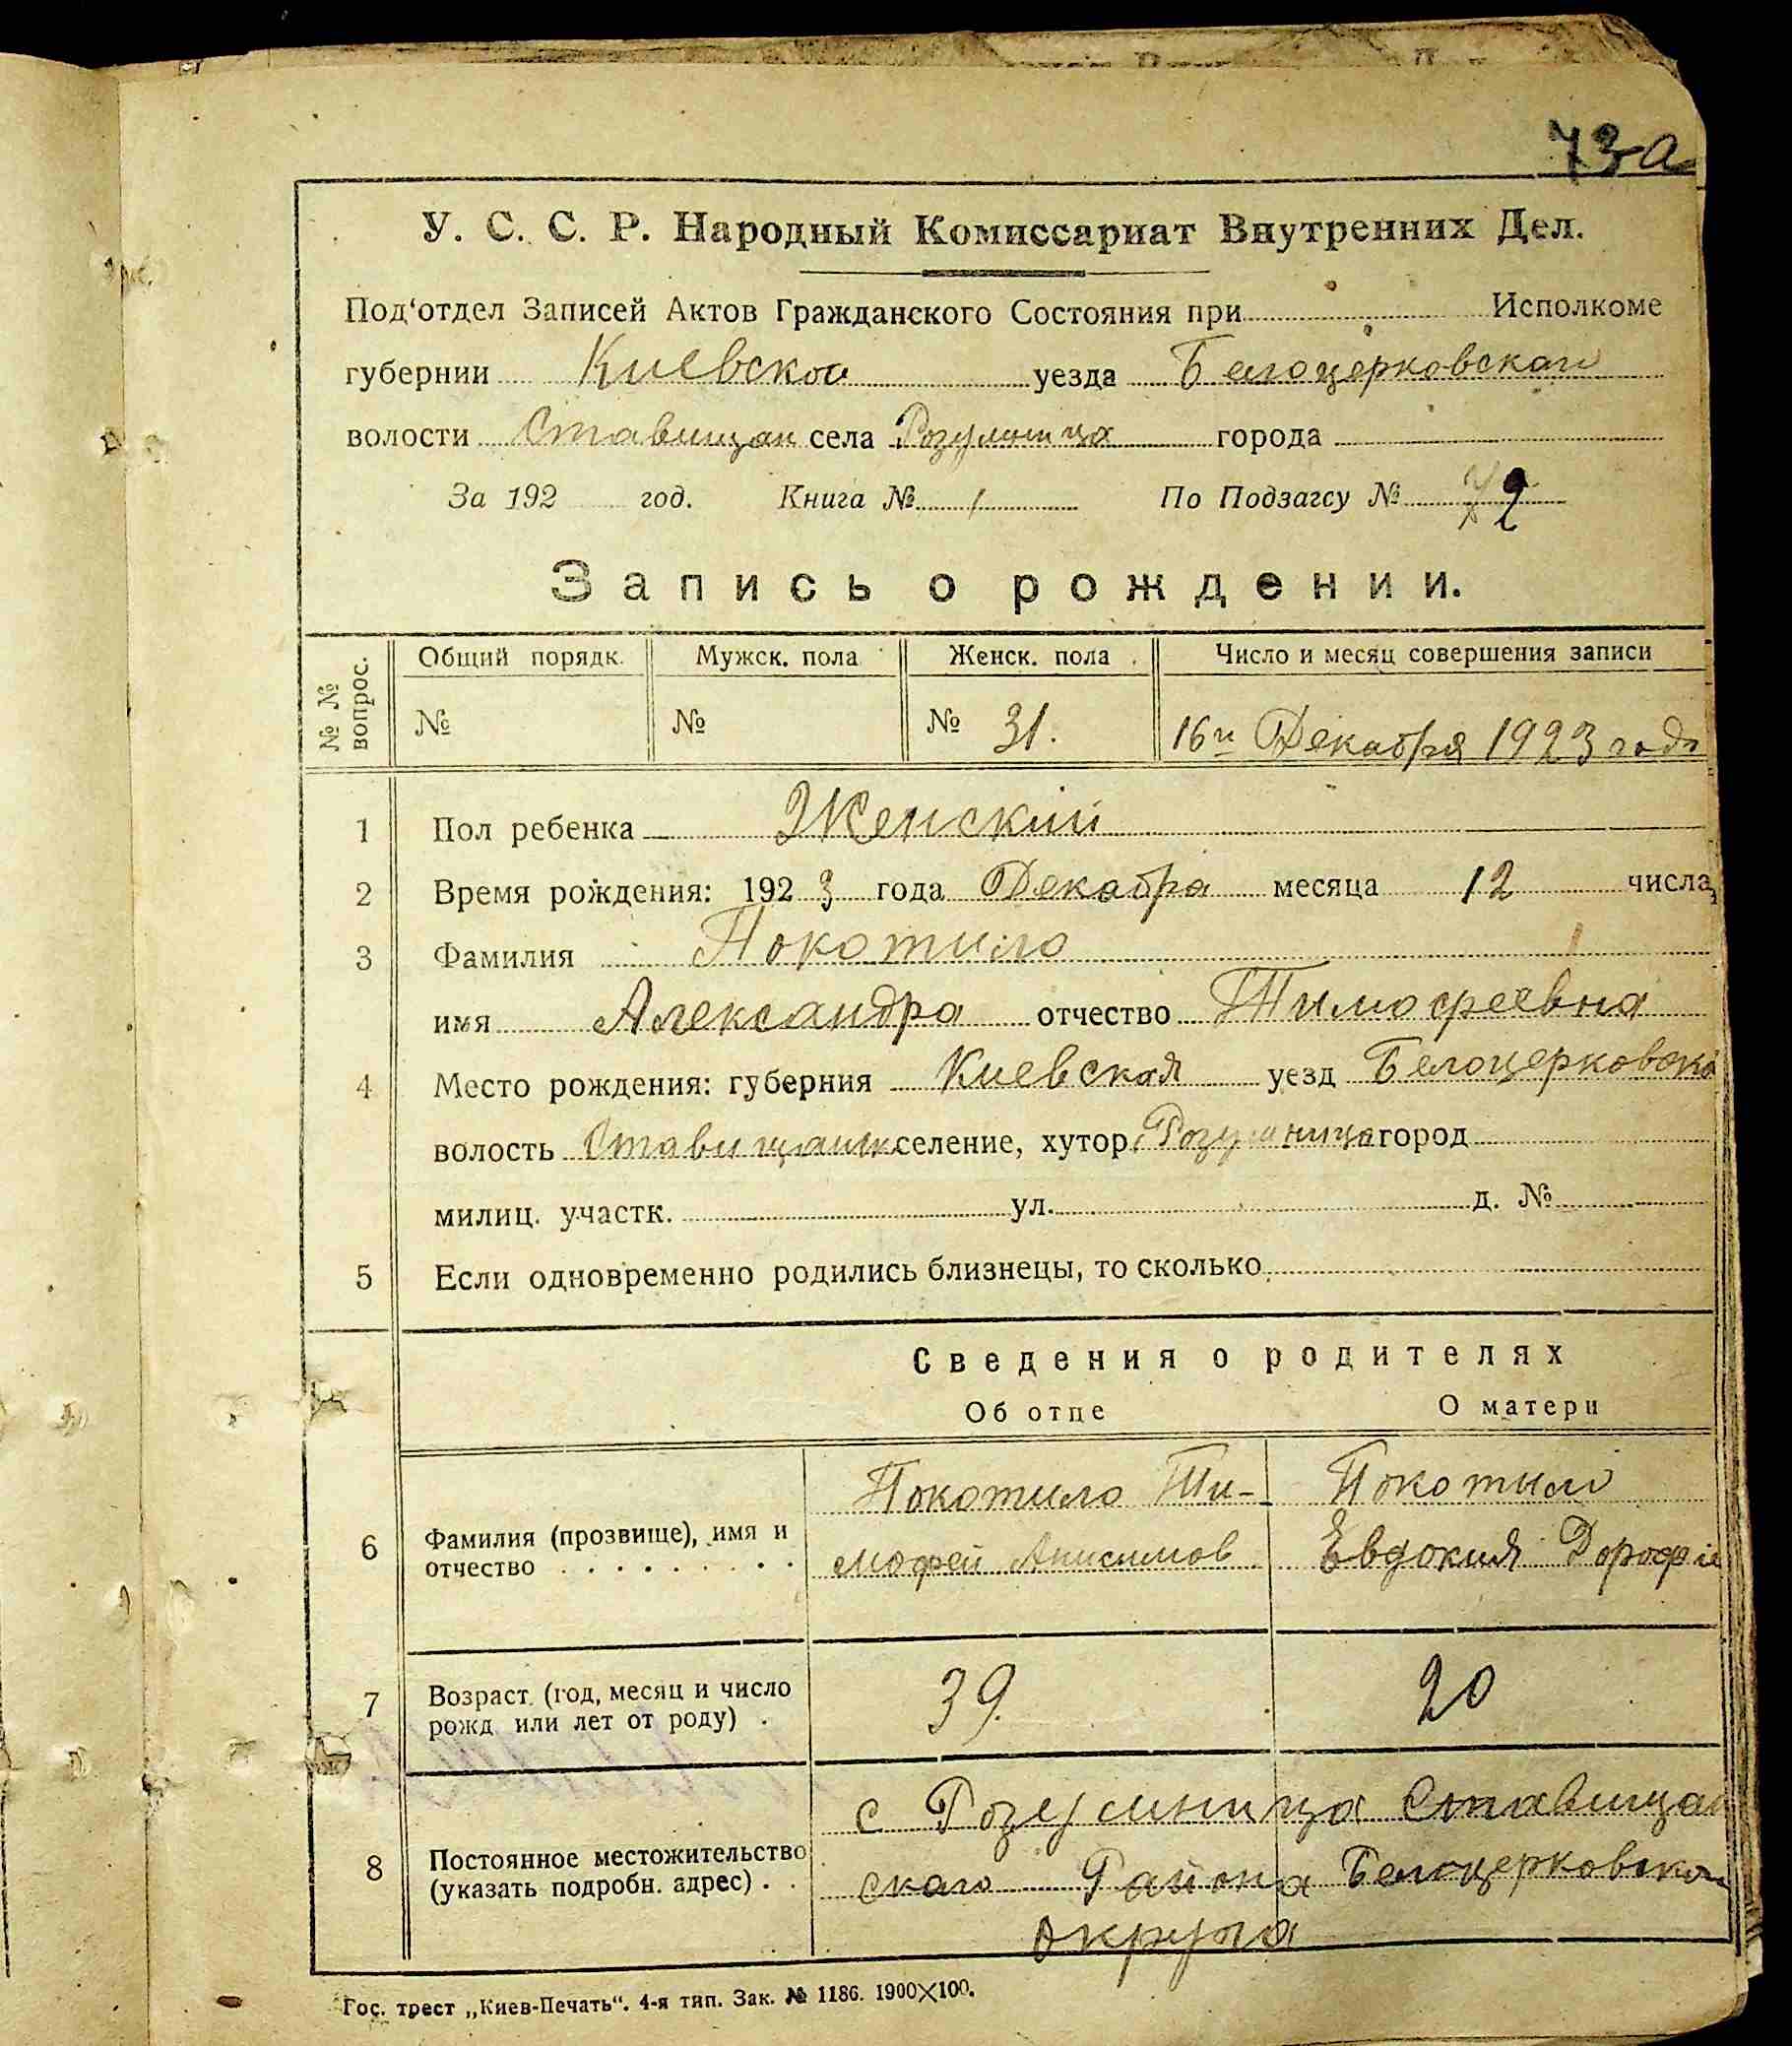 73-а
У. С. С. Р. Народный Комиссариат Внутренних Дел.
Под‘отдел Записей Актов Гражданского Состояния при Исполкоме
губернии Киевской уезда Белоцерковскаго
волости Ставищан села Розумница города
За 192 год. Книга № 1 По Подзагсу №
Запись о рождении.
№ № вопрос.
Общий порядк. Мужск. пола Женск. пола Число и месяц совершения записи
№ № № 31. 16го Декабря 1923 года
1 Пол ребенка Женский
2 Время рождения: 1923 года Декабра месяца 12 числа,
3 Фамилия Покотило
имя Александра отчество Тимофеевна
4 Место рождения: губерния Киевская уезд Белоцерковска
волость Ставищанск селение, хутор, Розумница город
милиц. участк. ул. д. №
5 Если одновременно родились близнецы, то сколько
Сведения о родителях
Об отце О матери
Покотило Ти- Покотило
6 Фамилия (прозвище), имя и отчество мофей Анисимов Евдокия Дорофie
7 Возраст (год, месяц и число рожд или лет от роду) 39. 20
с Розумница Ставищан
8 Постоянное местожительство (указать подробн. адрес) скаго Района Белоцерковскаго
округа
Гос. трест „Киев-Печать“. 4-я тип. Зак. № 1186. 1900×100.